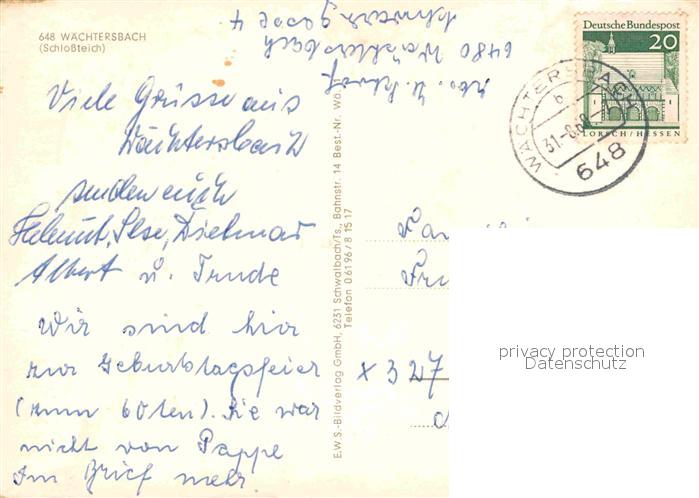 648 WÄCHTERSBACH
(Schloßteich)
Viele Grüsse aus
Wächtersbach
senden euch
Helmut, Ilse, Dietmar
Albert u. Trude
Wir sind hier
zur Geburtstagsfeier
(zum 60ten). Sie war
nicht von Pappe
Im Brief mehr
6480 Wächtersbach
4
E.W.S.-Bildverlag GmbH, 6231 Schwalbach/Ts., Bahnstr. 14 Best.-Nr. Wä.
Telefon 0 61 96 / 8 15 17
Deutsche Bundespost
20
LORSCH/HESSEN
WÄCHTERSBACH
b
31.-8.68
648
Fa
x 327
privacy protection
Datenschutz